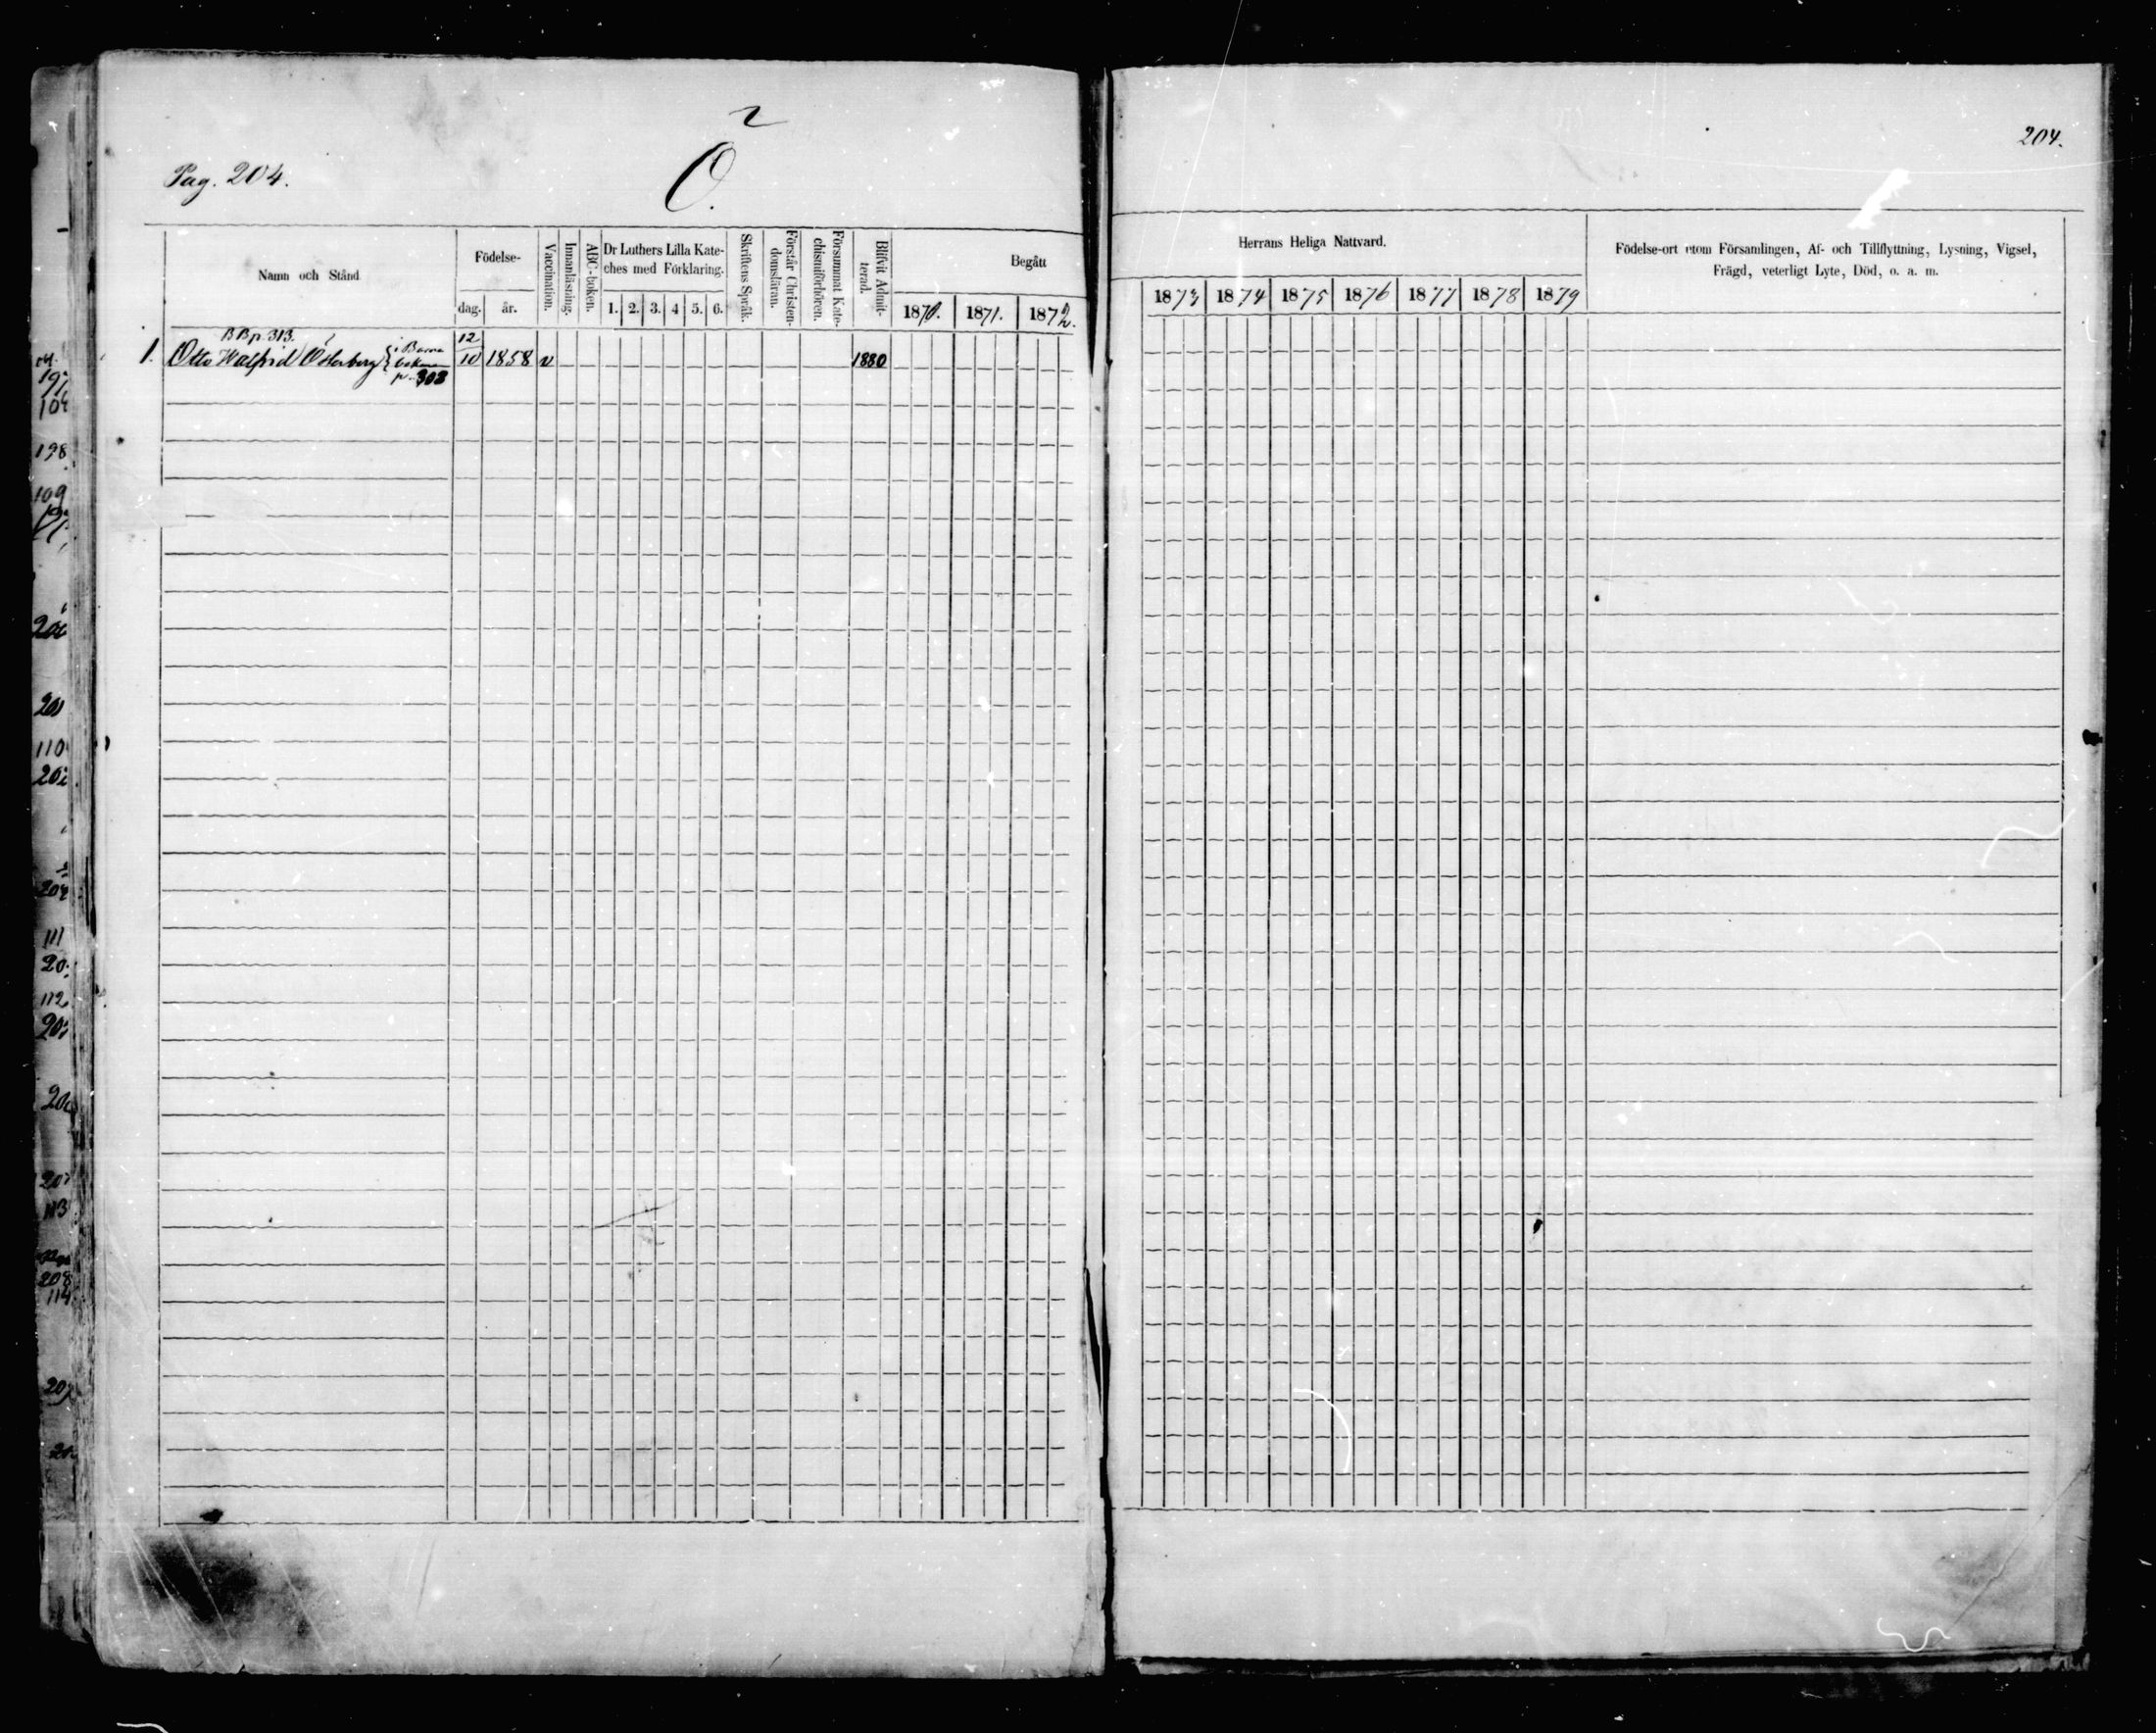 Pag. 204.
Ö.
204.
Namn och Stånd
Födelse-
dag.
år.
Vaccination.
Innanläsning.
ABC-boken.
Dr Luthers Lilla Kate-
ches med Förklaring.
1. 2. 3. 4 5. 6.
Skriftens Språk.
Förstår Christen-
domsläran.
Försummat Kate-
chismiförhören.
Blifvit Admit-
terad.
Begått
1870. 1871. 1872.
Herrans Heliga Nattvard.
1873 1874 1875 1876 1877 1878 1879
Födelse-ort utom Församlingen, Af- och Tillflyttning, Lysning, Vigsel,
Frägd, veterligt Lyte, Död, o. a. m.
BB p. 313.
1. Otto Walfrid Österberg { i Barna
boken
p. 303
12
10 1858 v 1880
198
109
110
111
112
113
208
114